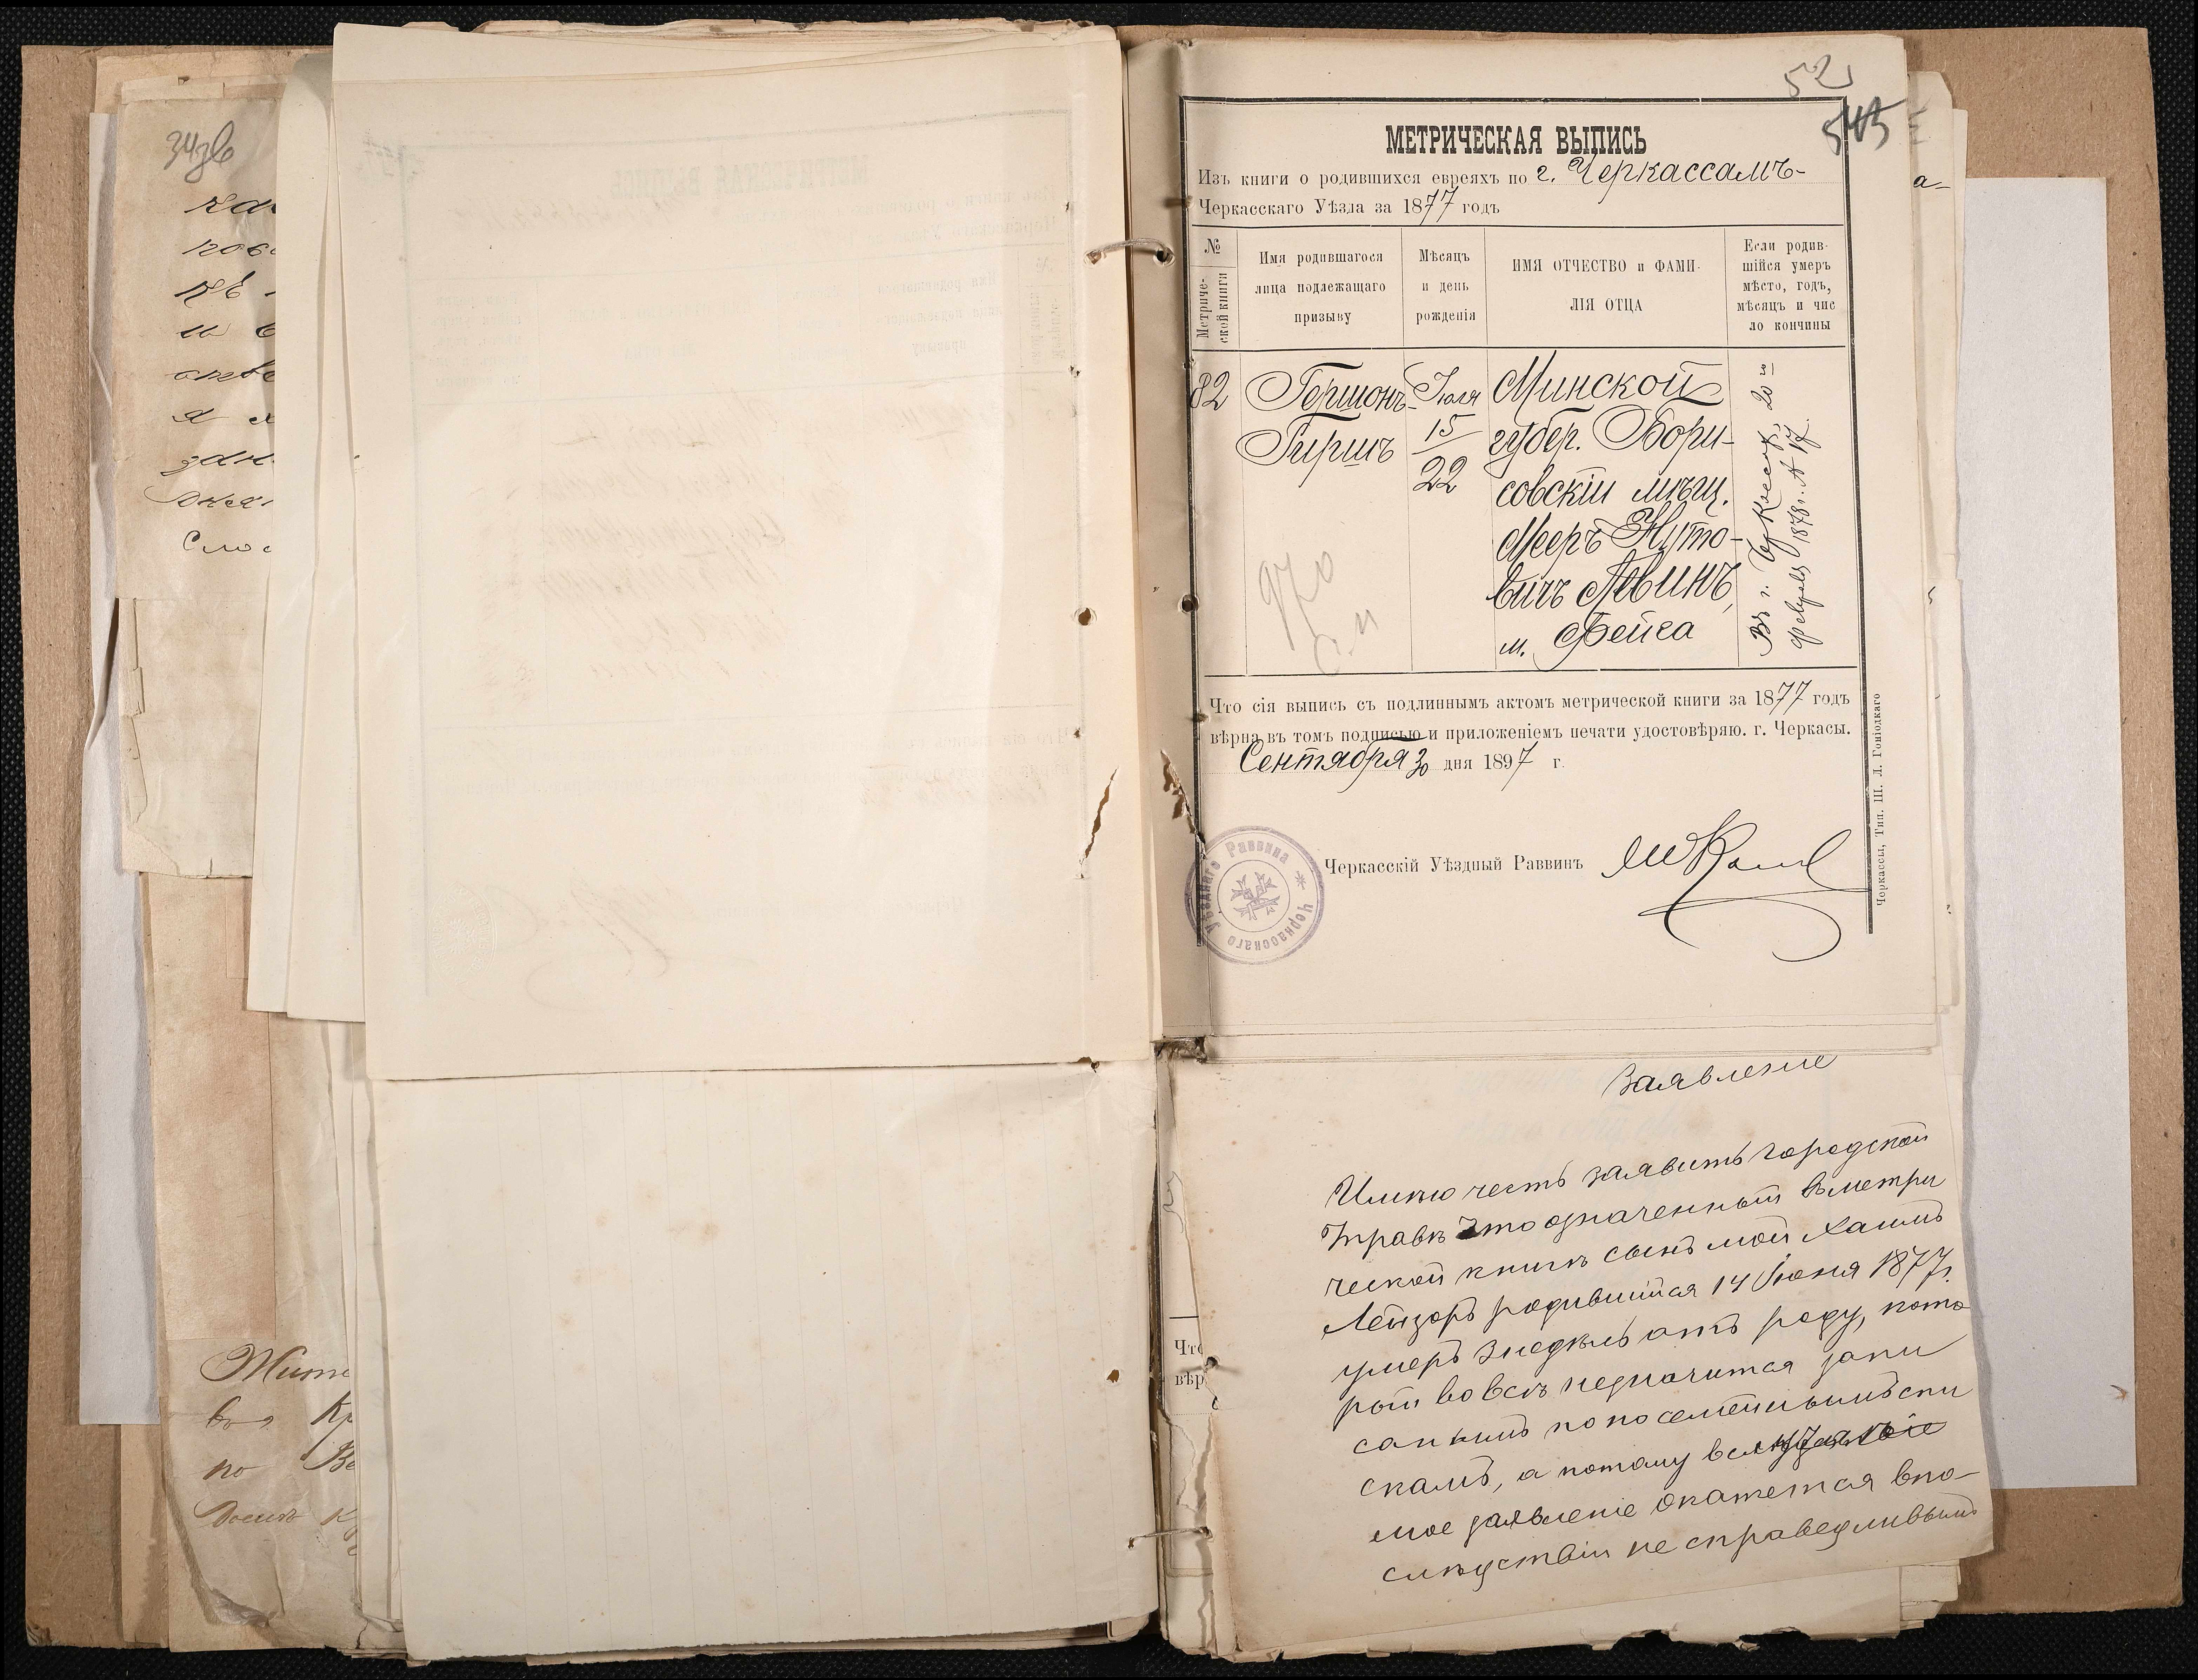 34 об
Жит
Кр
по Ве
52
МЕТРИЧЕСКАЯ ВЫПИСЬ
Изъ книги о родившихся евреяхъ по г. Черкассамъ
Черкасскаго Уѣзда за 1877 годъ
№ Метриче-ской книги
Имя родившагося лица подлежащаго призыву
Мѣсяцъ и день рожденія
ИМЯ ОТЧЕСТВО и ФАМИ-ЛІЯ ОТЦА
Если родив-шійся умеръ мѣсто, годъ, мѣсяцъ и чис ло кончины
82 Гершонъ- Іюля Минской
Гиршъ 15 губер. Бори-
22 совскій мѣщ.
Мееръ Нуто-
вичъ Левинъ,
м. Фейга
Въ г. Черкассахъ, 20го
февраля 1878 г. № 17.
970
Что сія выпись съ подлиннымъ актомъ метрической книги за 1877 годъ
вѣрна въ томъ подписью и приложеніемъ печати удостовѣряю. г. Черкасы.
Сентября 30 дня 1897 г.
Черкасскій Уѣздный Раввинъ
Черкасскаго Уѣзднаго Раввина
Черкассы, Тип. Ш. Л. Гоніодкаго
Заявленіе
Имѣю честь заявить городской
Управѣ что означенный вметри
ческой книгѣ сынъ мой Хаимъ
Лейзоръ родившійся 14 Іюня 1877 г.
умеръ 3 недѣль отъ роду, кото
рый вовсѣ незначится запи
саннымъ по посемейнымъ спи
скамъ, а потому если
мое заявленіе окажется впо-
слѣдствіи не справедливымъ
Что
вѣр